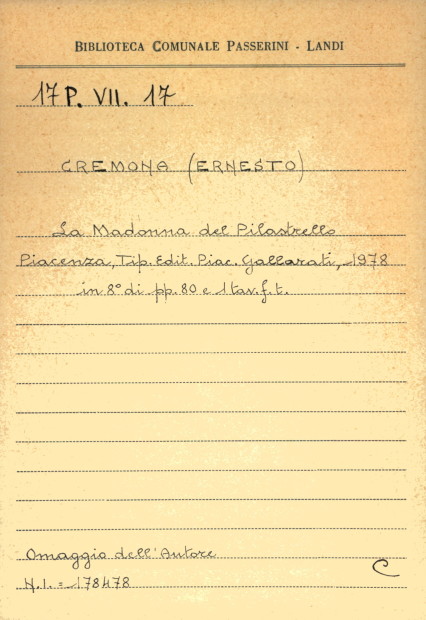 BIBLIOTECA COMUNALE PASSERINI - LANDI
17 P. VII. 17
CREMONA (ERNESTO)
La Madonna del Pilastrello
Piacenza, Tip. Edit. Piac. Gallarati, 1978
in 8° di pp. 80 e 1 tav. f. t.
Omaggio dell'Autore
N.I. = 178478
C